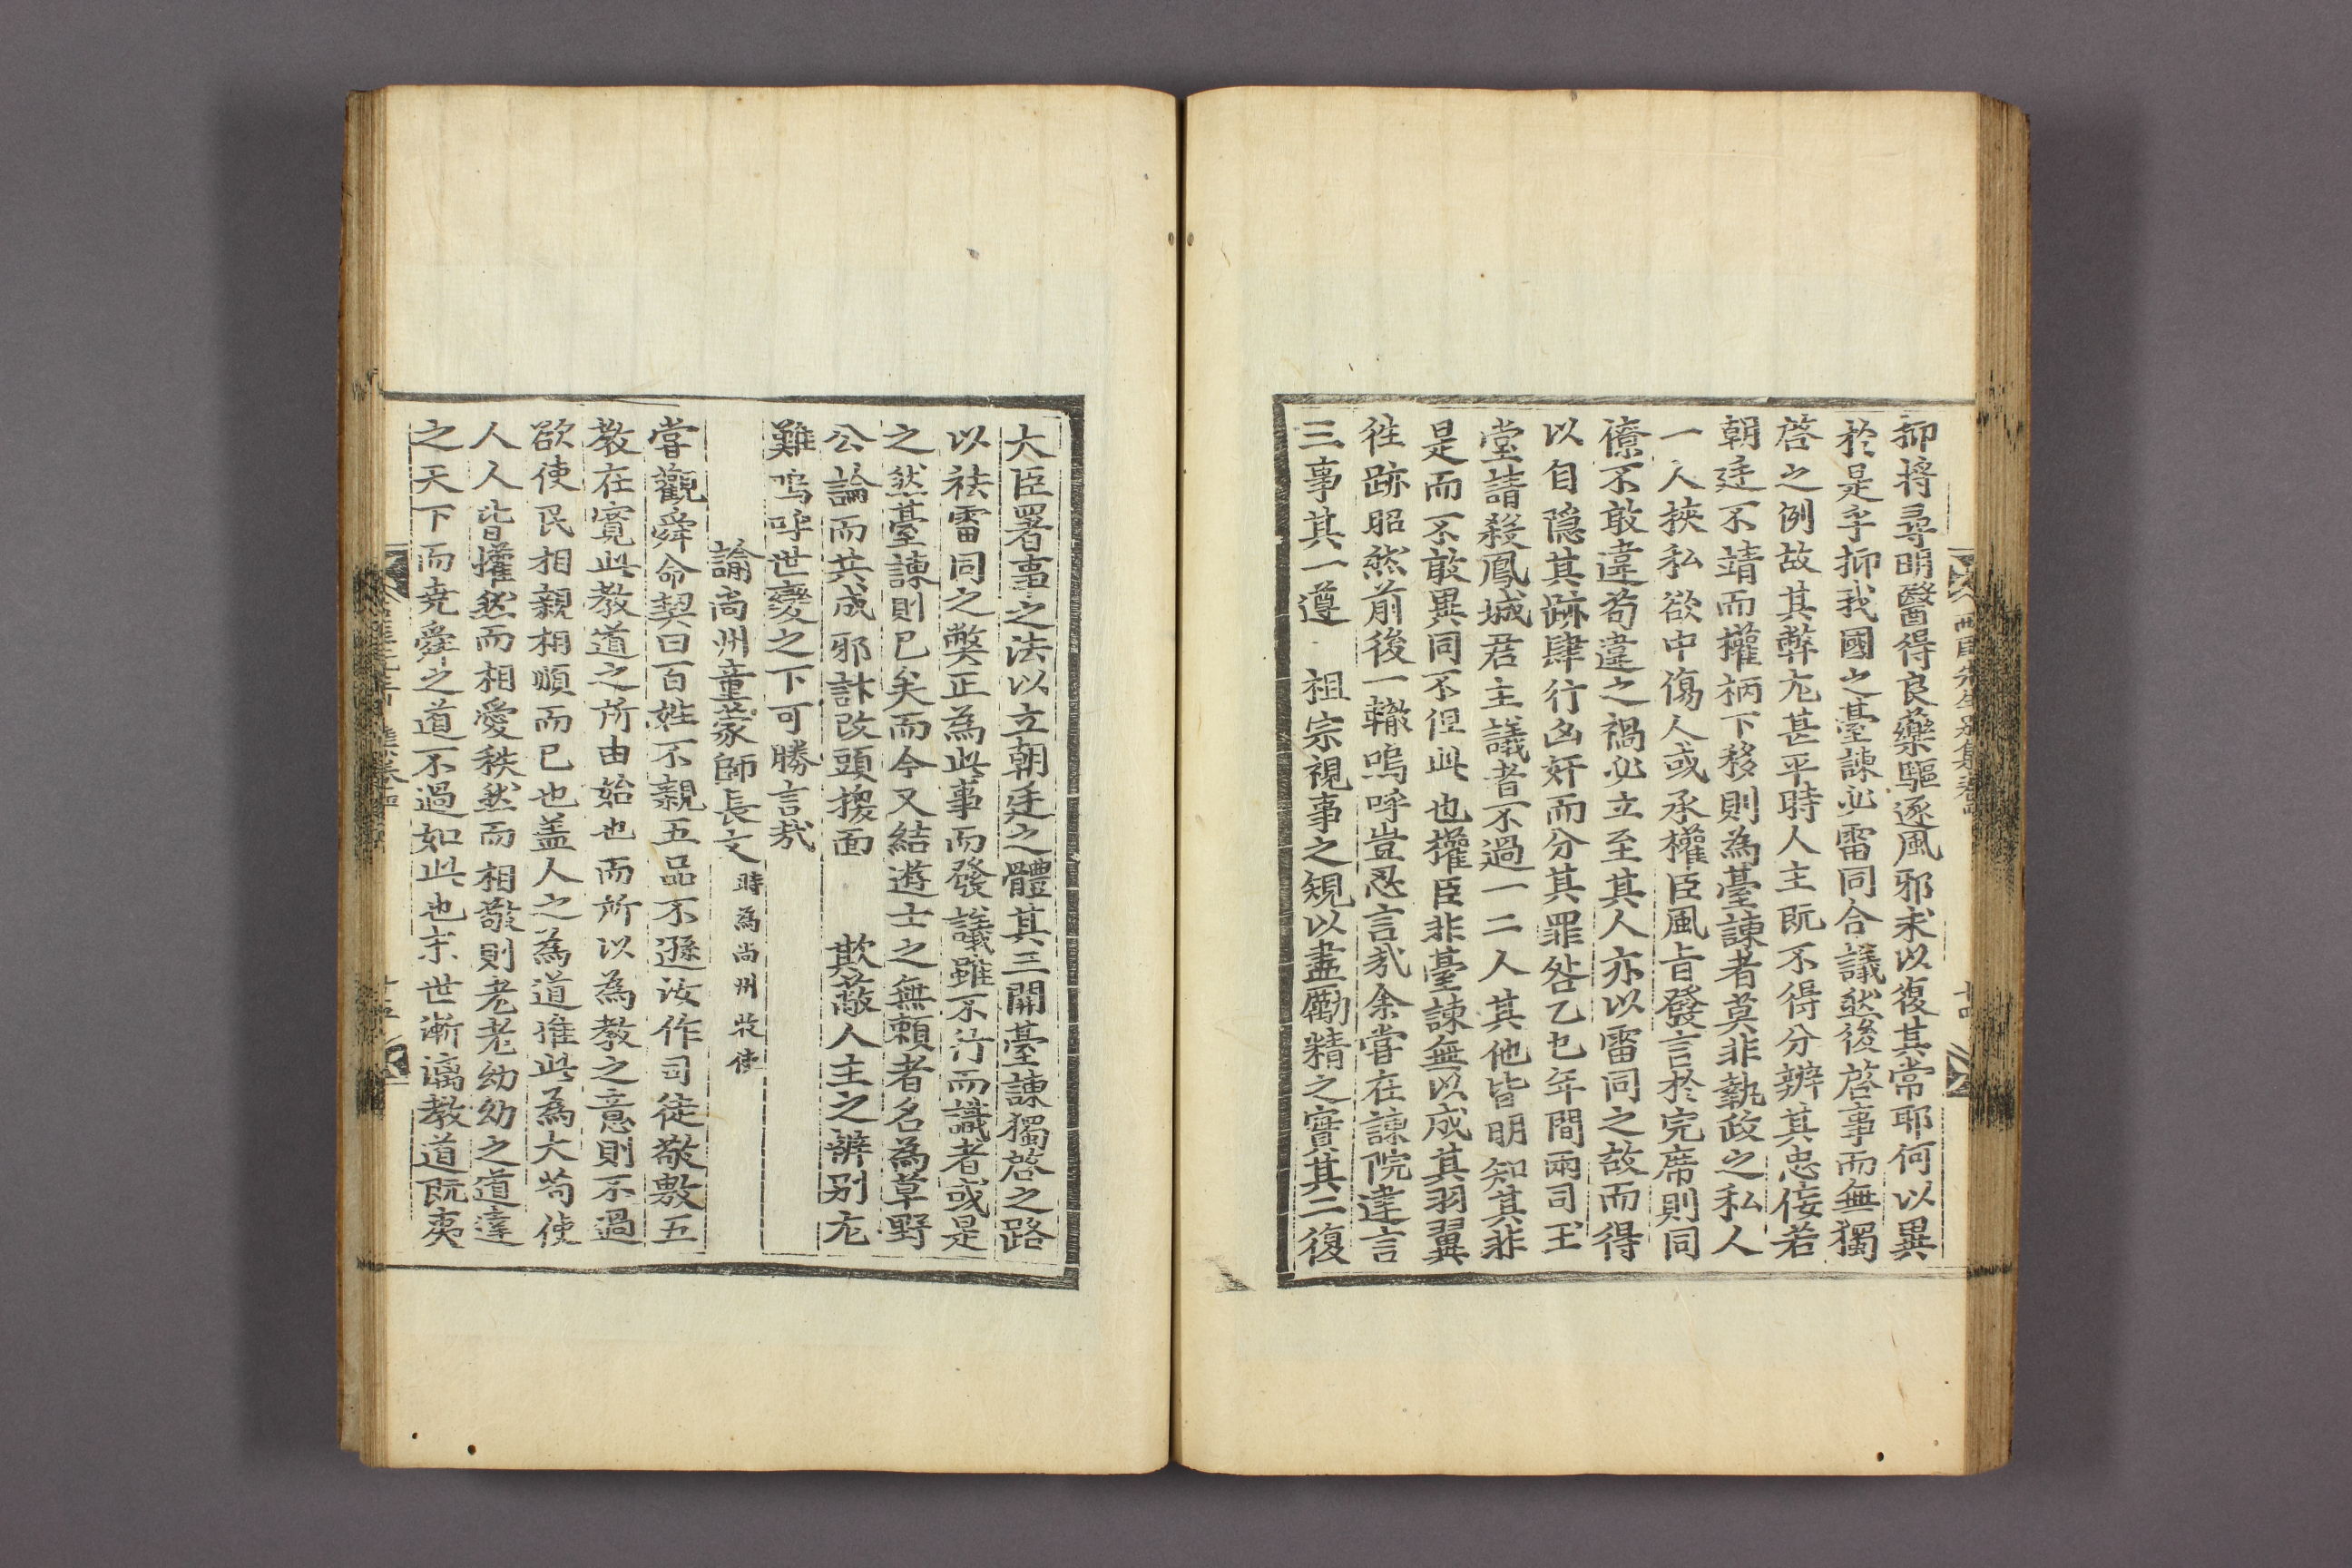 抑將尋明醫得良藥驅逐風邪求以復其常耶何以異
於是乎抑我國之臺諫必雷同合議然後啓事而無獨
啓之例故其弊尤甚平時人主既不得分辨其忠侫若
朝廷不靖而權柄下移則為臺諫者莫非執政之私人
一人挾私欲中傷人或承權臣風旨發言於完席則同
僚不敢違苟違之禍必立至其人亦以雷同之故而得
以自隱其跡肆行凶奸而分其罪咎乙巳年間兩司玉
堂請殺鳳城君主議者不過一二人其他皆明知其非
是而不敢異同不但此也權臣非臺諫無以成其羽翼
徃跡昭然前後一轍嗚呼豈忍言哉余嘗在諫院建言
三事其一遵 祖宗視事之規以盡勵精之實其二復
大臣署事之法以立朝廷之體其三開臺諫獨啓之路
以祛雷同之弊正為此事而發議雖不行而識者或是
之然臺諫則已矣而今又結遊士之無賴者名為草野
公論而共成邪計改頭換面 欺蔽人主之辨別尤
難嗚呼世變之下可勝言哉
諭尚州童蒙師長文 時為尚州牧使
嘗觀舜命契曰百姓不親五品不遜汝作司徒敬敷五
教在寬此教道之所由始也而所以為教之意則不過
欲使民相親相順而已也盖人之為道推此為大苟使
人人皆懽然而相愛秩然而相敬則老老幼幼之道達
之天下而堯舜之道不過如此也末世漸漓教道既夷